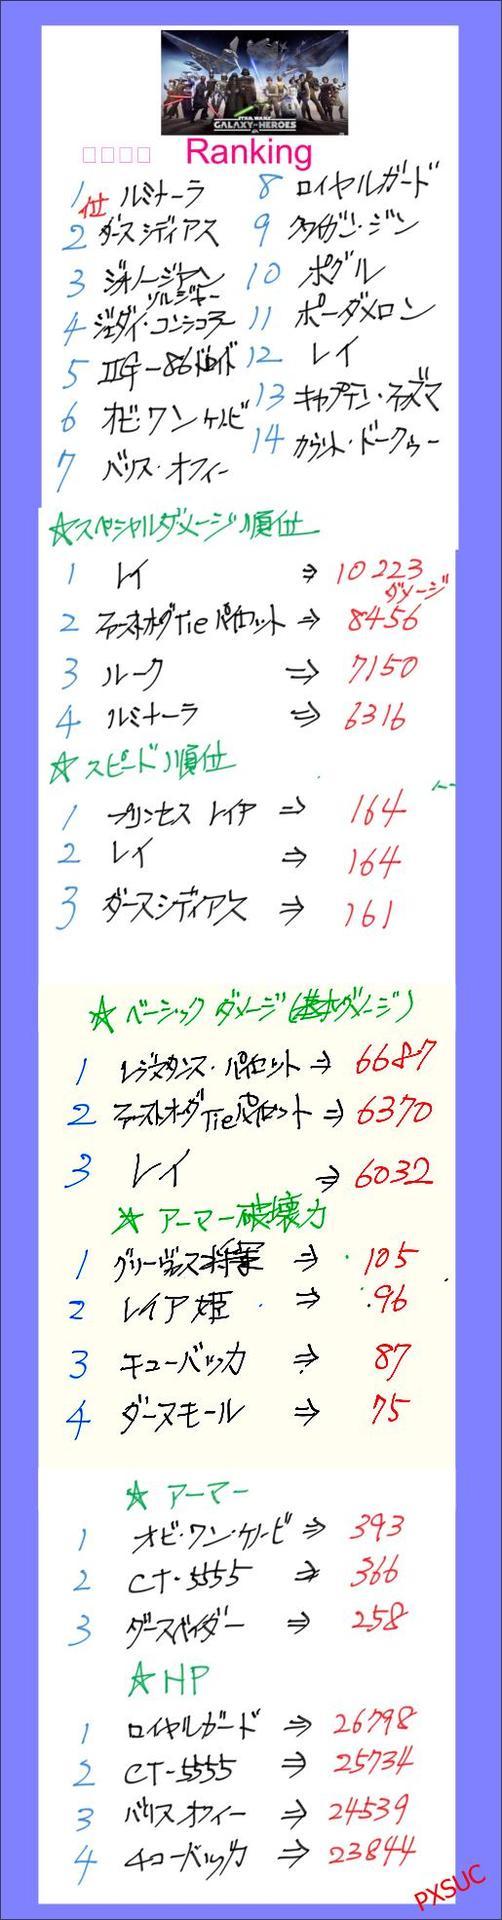 STAR WARS
GALAXY OF HEROES
□□□□ Ranking
1位 ルミナーラ
2 ダースシディアス
3 ジオノージャン ソルジャー
4 ジェダイ・コンシュラー
5 IG-86ドロイド
6 オビ・ワンケノービ
7 バリス・オフィー
8 ロイヤルガード
9 クワイガン・ジン
10 ポグル
11 ポーダメロン
12 レイ
13 キャプテン・ファズマ
14 カウント・ドークゥー
☆スペシャルダメージ順位
1 レイ ⇒ 10223ダメージ
2 ファーストオーダTieパイロット ⇒ 8456
3 ルーク ⇒ 7150
4 ルミナーラ ⇒ 6316
☆スピード順位
1 プリンセス レイア ⇒ 164
2 レイ ⇒ 164
3 ダースシディアス ⇒ 161
☆ベーシック ダメージ(基本ダメージ)
1 レジスタンス・パイロット ⇒ 6687
2 ファーストオーダTieパイロット ⇒ 6370
3 レイ ⇒ 6032
☆アーマー破壊力
1 グリーヴァス将軍 ⇒ 105
2 レイア姫 ⇒ 96
3 キューバッカ ⇒ 87
4 ダースモール ⇒ 75
☆アーマー
1 オビ・ワン・ケノービ ⇒ 393
2 CT-5555 ⇒ 366
3 ダースベイダー ⇒ 258
☆HP
1 ロイヤルガード ⇒ 26798
2 CT-5555 ⇒ 25734
3 バリスオフィー ⇒ 24539
4 チューバッカ ⇒ 23844
PXSUC